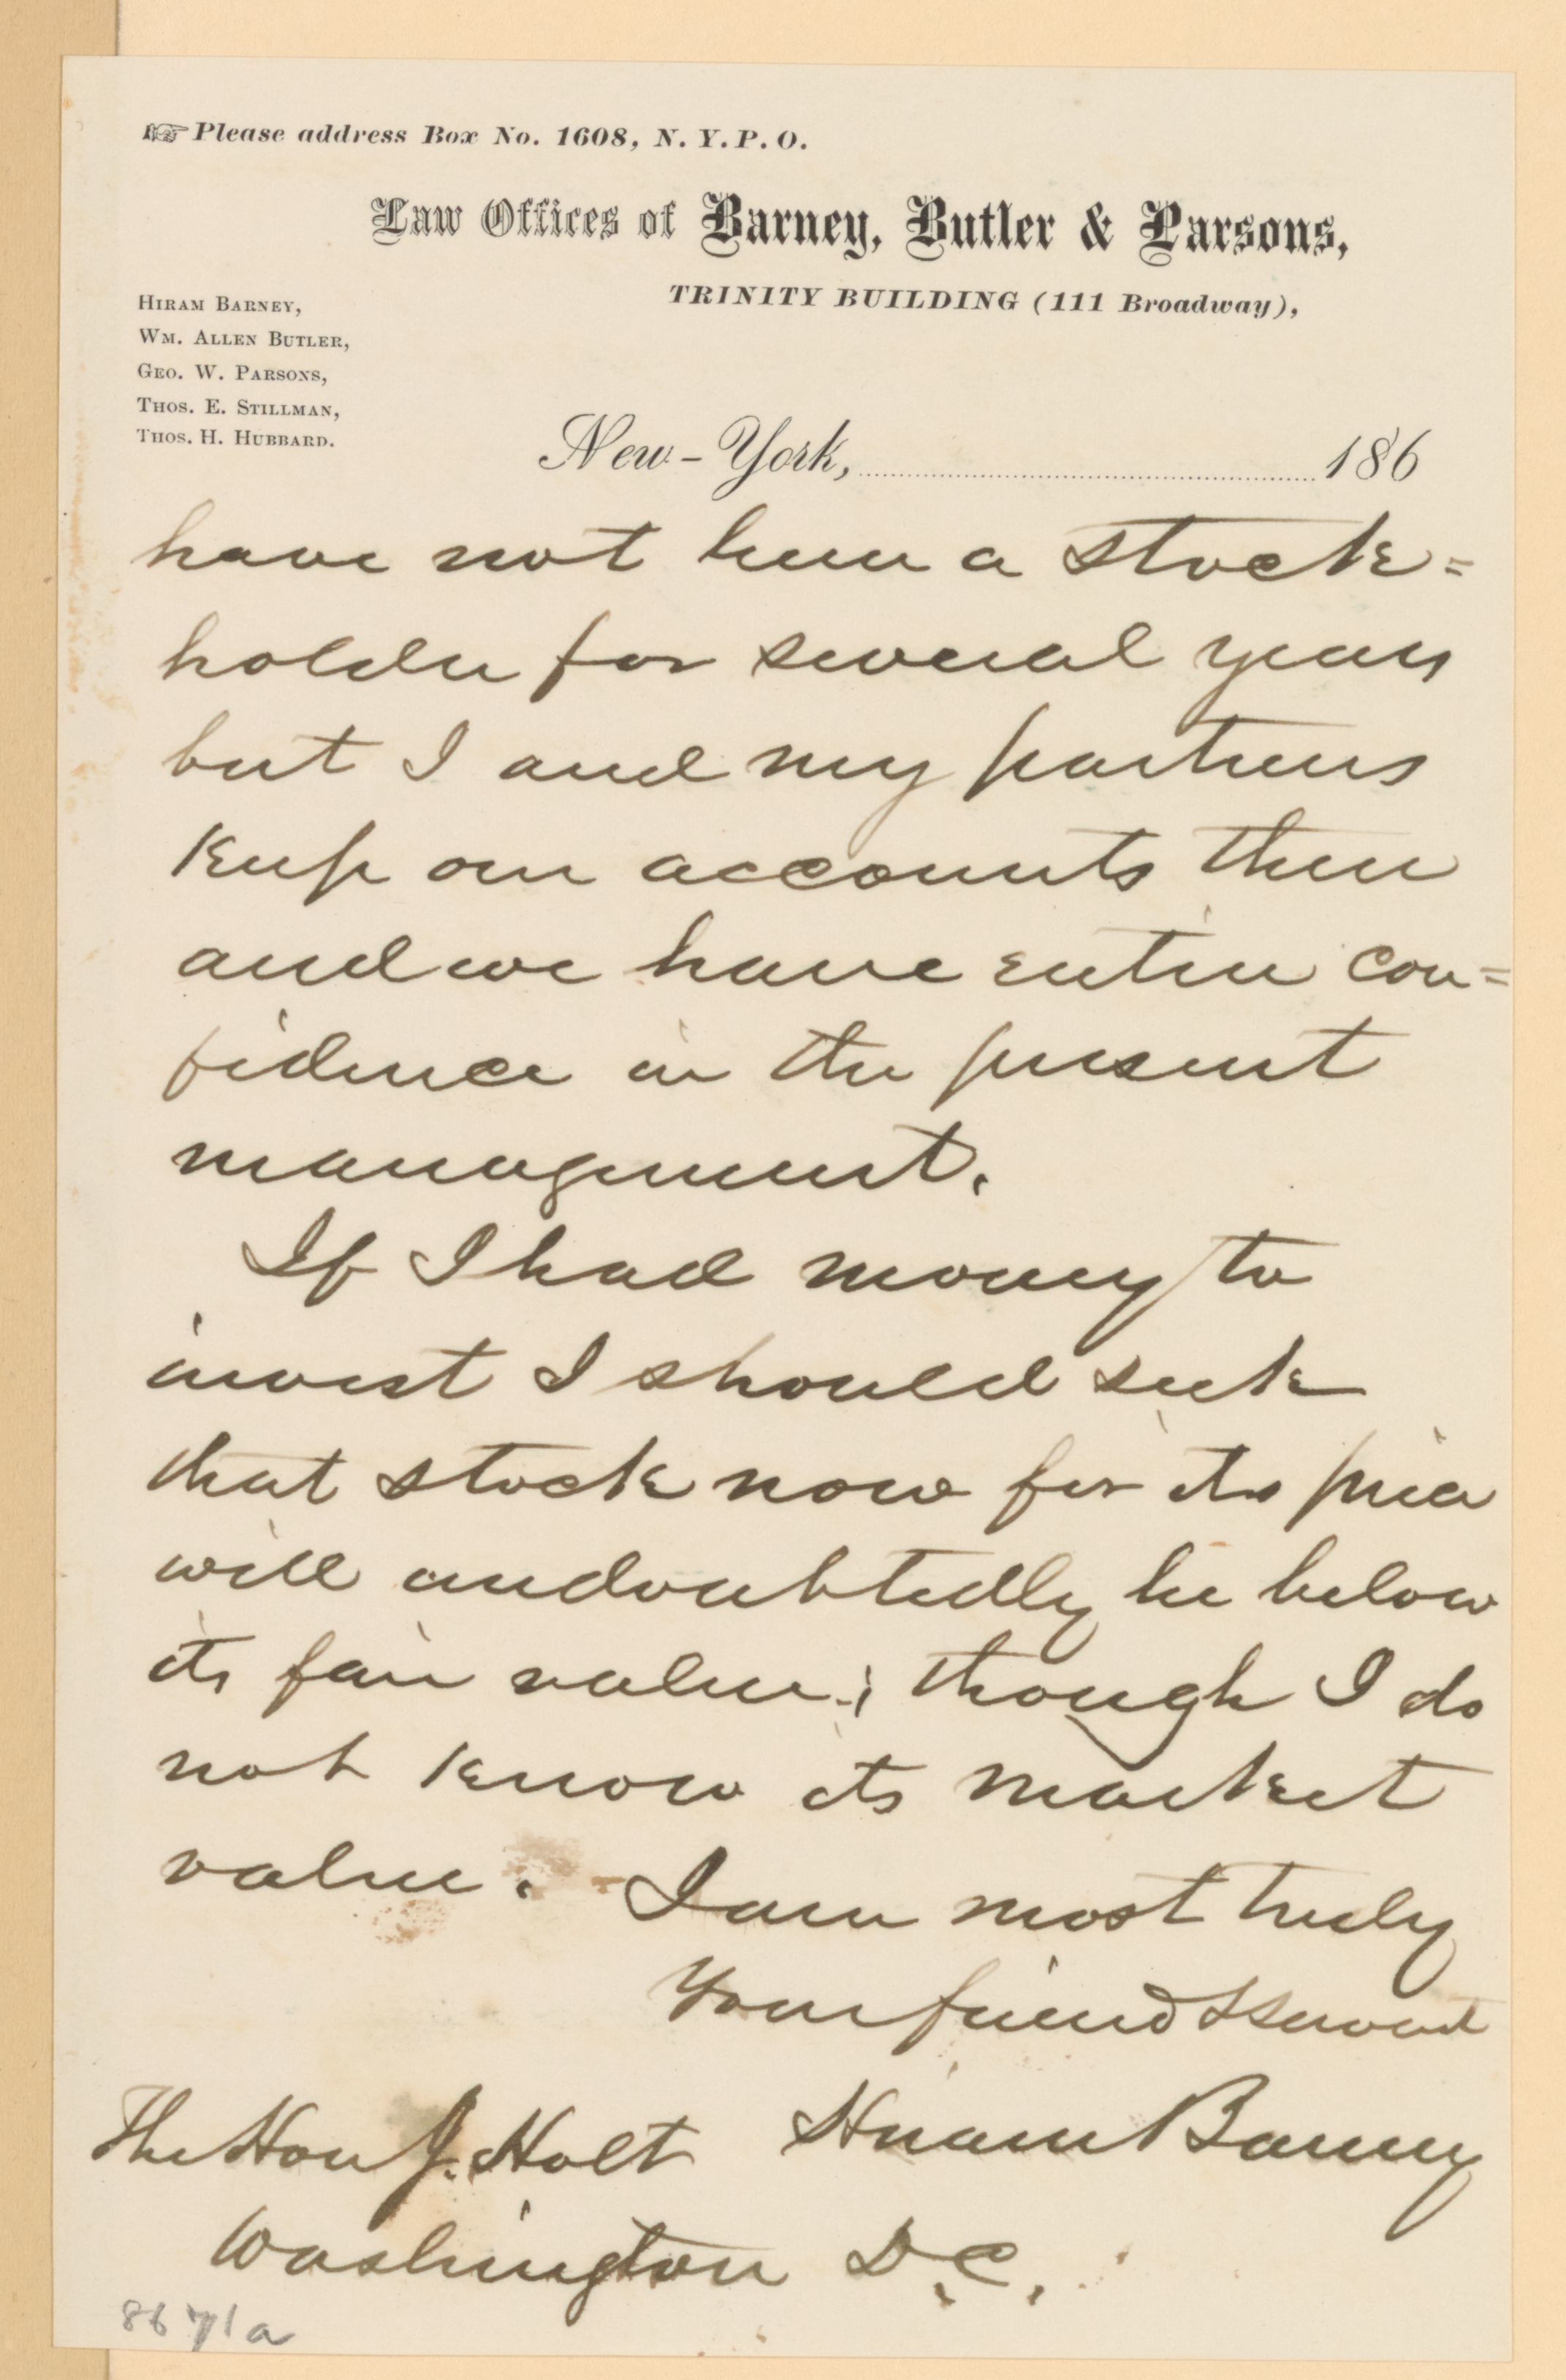 ☞ Please address Box No. 1608, N. Y. P. O.
Law Offices of Barney, Butler & Parsons,
TRINITY BUILDING (111 Broadway),
HIRAM BARNEY,
WM. ALLEN BUTLER,
GEO. W. PARSONS,
THOS. E. STILLMAN,
THOS. H. HUBBARD.
New-York, 186
have not been a stock=
holder for several years
but I and my partners
keep our accounts there
and we have entire con=
fidence in the present
management.
If I had money to
invest I should seek
that stock now for its price
will undoubtedly be below
its fair value; though I do
not know its market
value. I am most truly
Your friend & Servant
The Hon J. Holt Hiram Barney
Washington D.C.
8671a